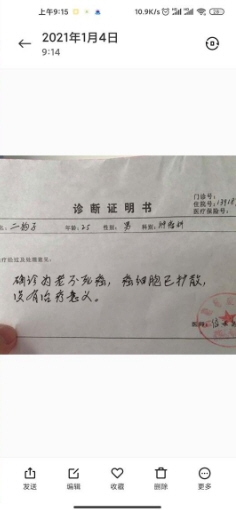 上午9:15
10.9K/s
2021年1月4日
9:14
诊断证明书
门诊号:
住院号:
医疗保险号:
年龄: 25 性别: 男 科别: 肿瘤科
疗经过及处理意见:
确诊为老不死癌, 癌细胞已扩散,
没有治疗意义。
发送 编辑 收藏 删除 更多